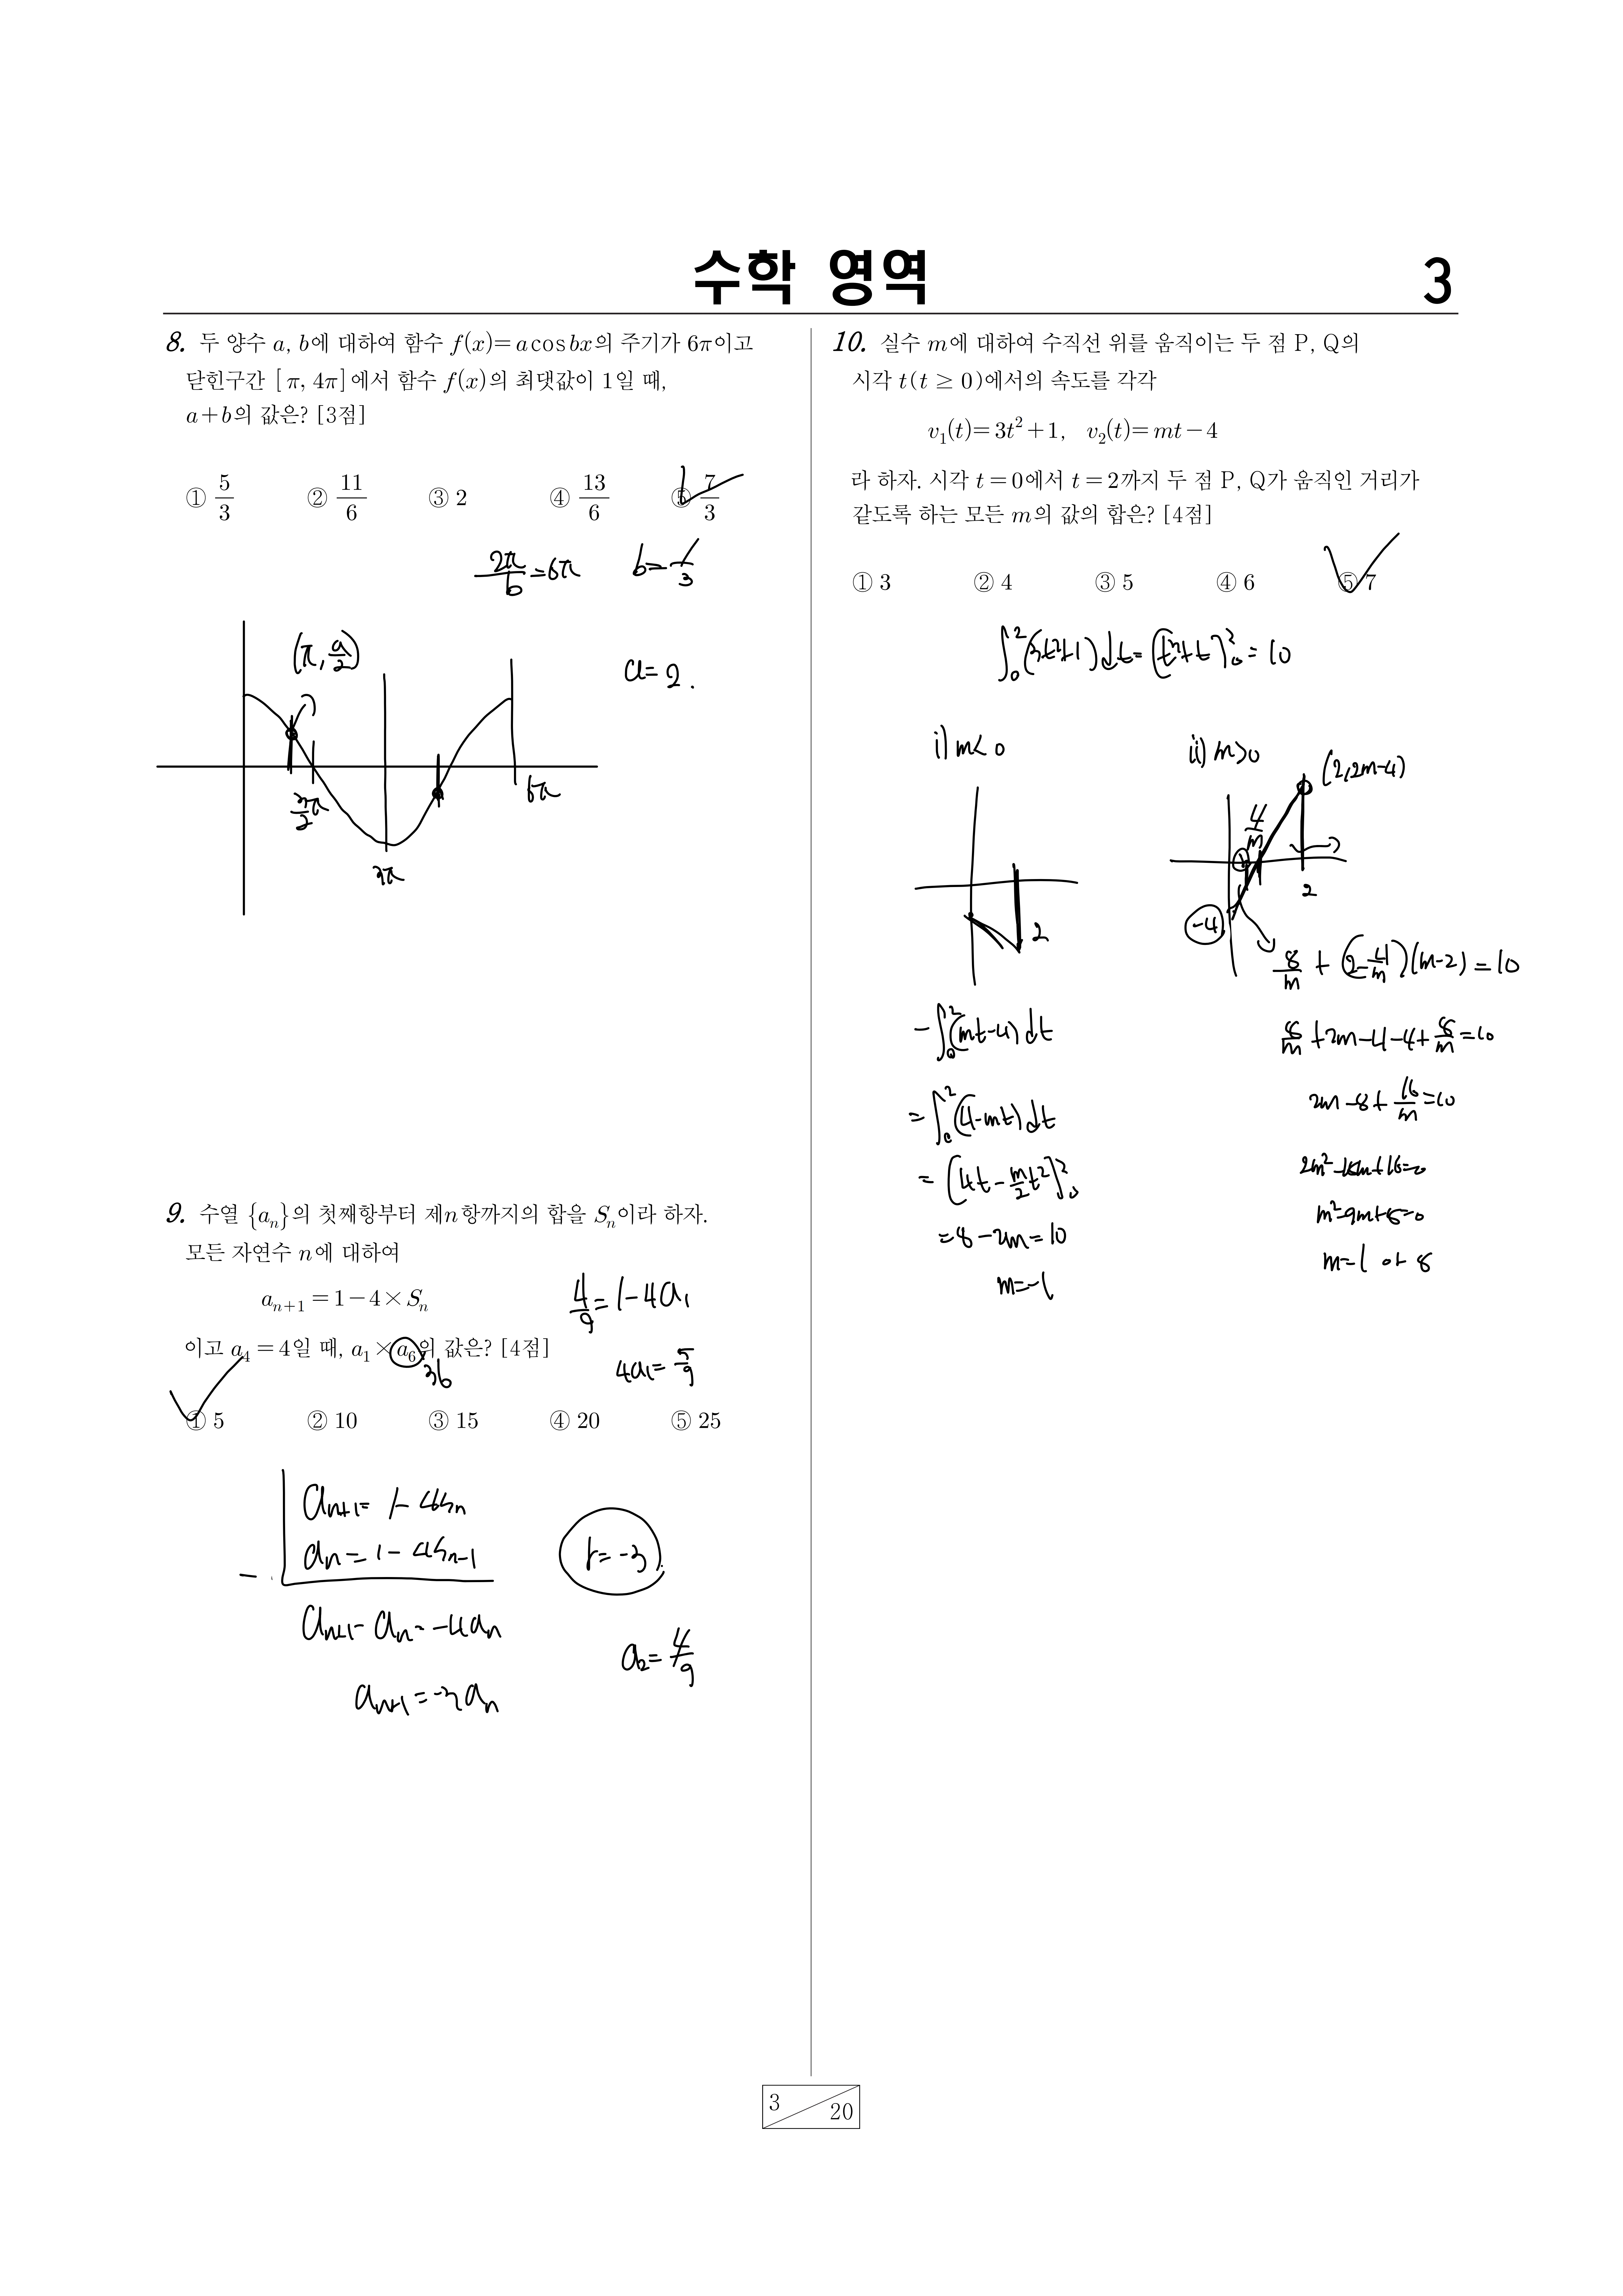 수학 영역
3
8. 두 양수 a, b에 대하여 함수 f(x)=a cos bx의 주기가 6π이고
닫힌구간 [π, 4π]에서 함수 f(x)의 최댓값이 1일 때,
a+b의 값은? [3점]
① 5/3 ② 11/6 ③ 2 ④ 13/6 ⑤ 7/3
2π/b=6π b=1/3
(π, a/2)
a=2.
3/2π
6π
3π
9. 수열 {aₙ}의 첫째항부터 제n항까지의 합을 Sₙ이라 하자.
모든 자연수 n에 대하여
aₙ₊₁=1-4×Sₙ
4/9=1-4a₁
이고 a₄=4일 때, a₁×a₆의 값은? [4점]
36
4a₁=5/9
① 5 ② 10 ③ 15 ④ 20 ⑤ 25
aₙ₊₁=1-4Sₙ
aₙ=1-4Sₙ₋₁
r=-3
aₙ₊₁-aₙ=-4aₙ
a₂=4/9
aₙ₊₁=-3aₙ
10. 실수 m에 대하여 수직선 위를 움직이는 두 점 P, Q의
시각 t(t≥0)에서의 속도를 각각
v₁(t)=3t²+1, v₂(t)=mt-4
라 하자. 시각 t=0에서 t=2까지 두 점 P, Q가 움직인 거리가
같도록 하는 모든 m의 값의 합은? [4점]
① 3 ② 4 ③ 5 ④ 6 ⑤ 7
∫₀²(3t²+1)dt=[t³+t]₀²=10
i) m<0
2
-∫₀²(mt-4)dt
=∫₀²(4-mt)dt
=[4t-m/2t²]₀²
=8-2m=10
m=-1
ii) m>0
(2,2m-4)
4/m
2
-4
8/m+(2-4/m)(m-2)=10
8/m+2m-4-4+8/m=10
2m-8+16/m=10
2m²-18m+16=0
m²-9m+8=0
m=1 or 8
3
20